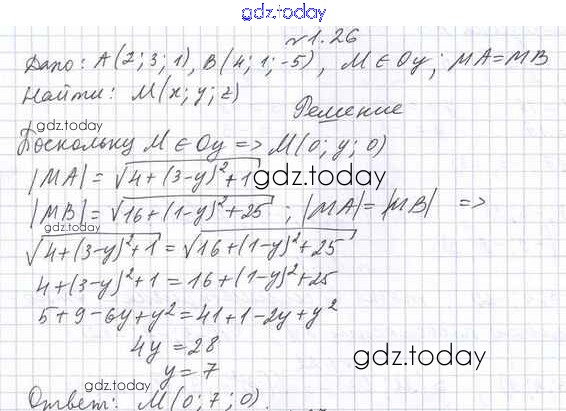 gdz.today
№1.26
Дано: A(2; 3; 1), B(4; 1; -5), M ∈ Oy; MA = MB
Найти: M(x; y; z)
Решение
gdz.today
Поскольку M ∈ Oy => M(0; y; 0)
|MA| = √(4+(3-y)²+1)
gdz.today
|MB| = √(16+(1-y)²+25) ; |MA| = |MB| =>
gdz.today
√(4+(3-y)²+1) = √(16+(1-y)²+25)
4+(3-y)²+1 = 16+(1-y)²+25
5+9-6y+y² = 41+1-2y+y²
4y = 28
gdz.today
y = 7
gdz.today
Ответ: M(0; 7; 0).